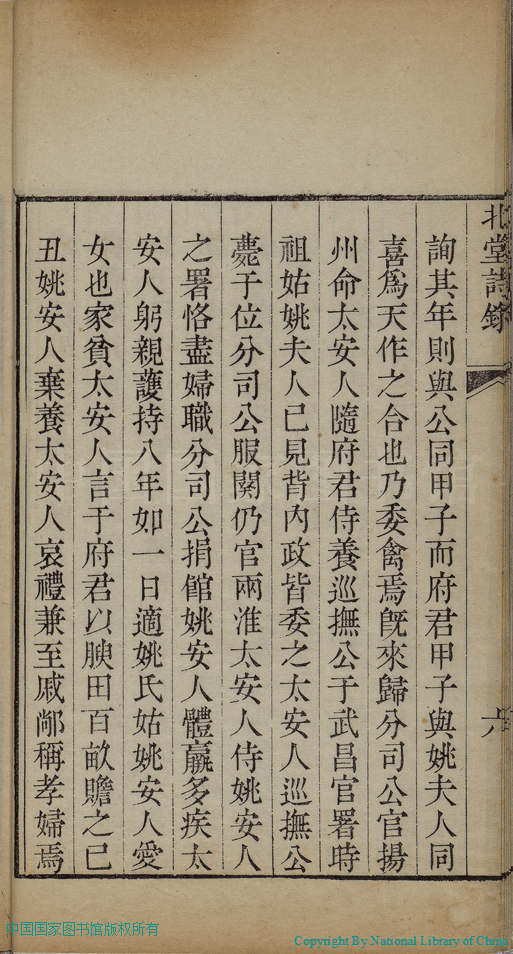 北堂詩錄
六
詢其年則與公同甲子而府君甲子與姚夫人同
喜為天作之合也乃委禽焉旣來歸分司公官揚
州命太安人隨府君侍養巡撫公于武昌官署時
祖姑姚夫人已見背内政皆委之太安人巡撫公
薨于位分司公服闋仍官兩淮太安人侍姚安人
之署恪盡婦職分司公捐館姚安人體羸多疾太
安人躬親護持八年如一日適姚氏姑姚安人愛
女也家貧太安人言于府君以腴田百畝贍之己
丑姚安人棄養太安人哀禮兼至戚鄰稱孝婦焉
中国国家图书馆版权所有
Copyright By National Library of China